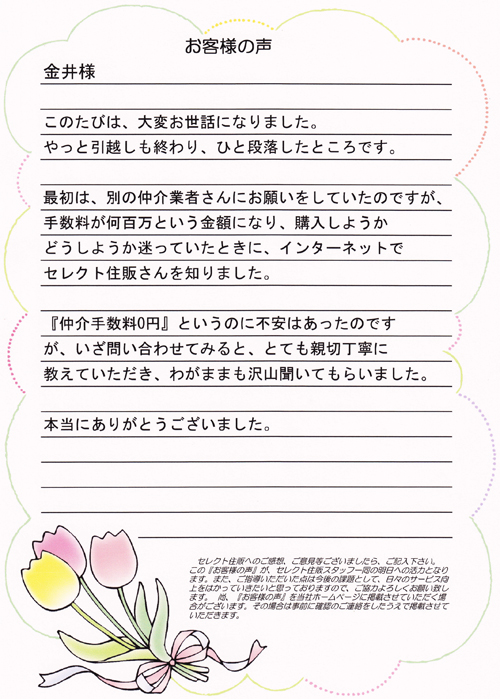 お客様の声
金井様
このたびは、大変お世話になりました。
やっと引越しも終わり、ひと段落したところです。
最初は、別の仲介業者さんにお願いをしていたのですが、
手数料が何百万という金額になり、購入しようか
どうしようか迷っていたときに、インターネットで
セレクト住販さんを知りました。
『仲介手数料0円』というのに不安はあったのです
が、いざ問い合わせてみると、とても親切丁寧に
教えていただき、わがままも沢山聞いてもらいました。
本当にありがとうございました。
セレクト住販へのご感想、ご意見等ございましたら、ご記入下さい。
この『お客様の声』が、セレクト住販スタッフ一同の明日への活力となり
ます。また、ご指導いただいた点は今後の課題として、日々のサービス向
上をはかっていきたいと思っておりますので、ご協力よろしくお願い致し
ます。 尚、『お客様の声』を当社ホームページに掲載させていただく場
合がございます。その場合は事前に確認のご連絡をしたうえで掲載させて
いただきます。